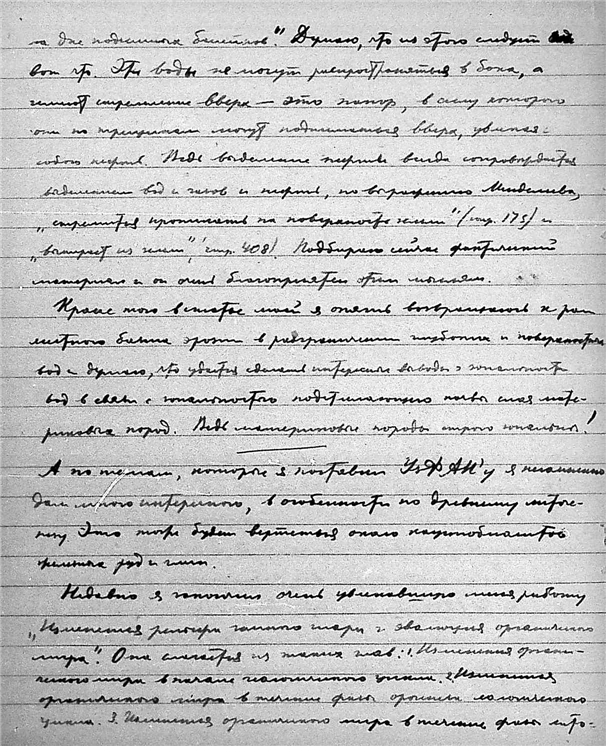 на дне подземных бассейнов". Думаю, что из этого следует
вот что. Эти воды не могут распространяться в бока, а
имеют стремление вверх — это напор, в силу которого
они по трещинам могут подниматься вверх, увлекая с
собою нефть. Ведь выделение нефти всегда сопровождается
выделением вод и газов и нефть, по выражению Менделеева,
"стремится проникать на поверхность земли" (стр. 175) и
"выпирает из земли", (стр. 408). Подбираю сейчас фактический
материал и он очень благоприятен этим мыслям.
Кроме того в статье моей я опять возвращаюсь к
базиса эрозии в разграничении глубоких и поверхностных
вод и думаю, что удастся сделать интересные выводы о зональности
вод в связи с зональностью подстилающего почвы слоя мате-
риковых пород. Ведь материковые породы строго зональны!
А по темам, которые я поставил УзФАН'у я несомненно
дам много интересного, в особенности по древнему
Это тоже будет вертеться около
руд и глин.
Недавно я закончил очень увлекавшую меня работу
"Изменения рельефа земного шара и эволюция органического
мира". Она слагается из таких глав: 1. Изменения органи-
ческого мира в начале геологического цикла. 2. Изменения
органического мира в течение фазы орогенеза геологического
цикла. 3. Изменения органического мира в течение фазы